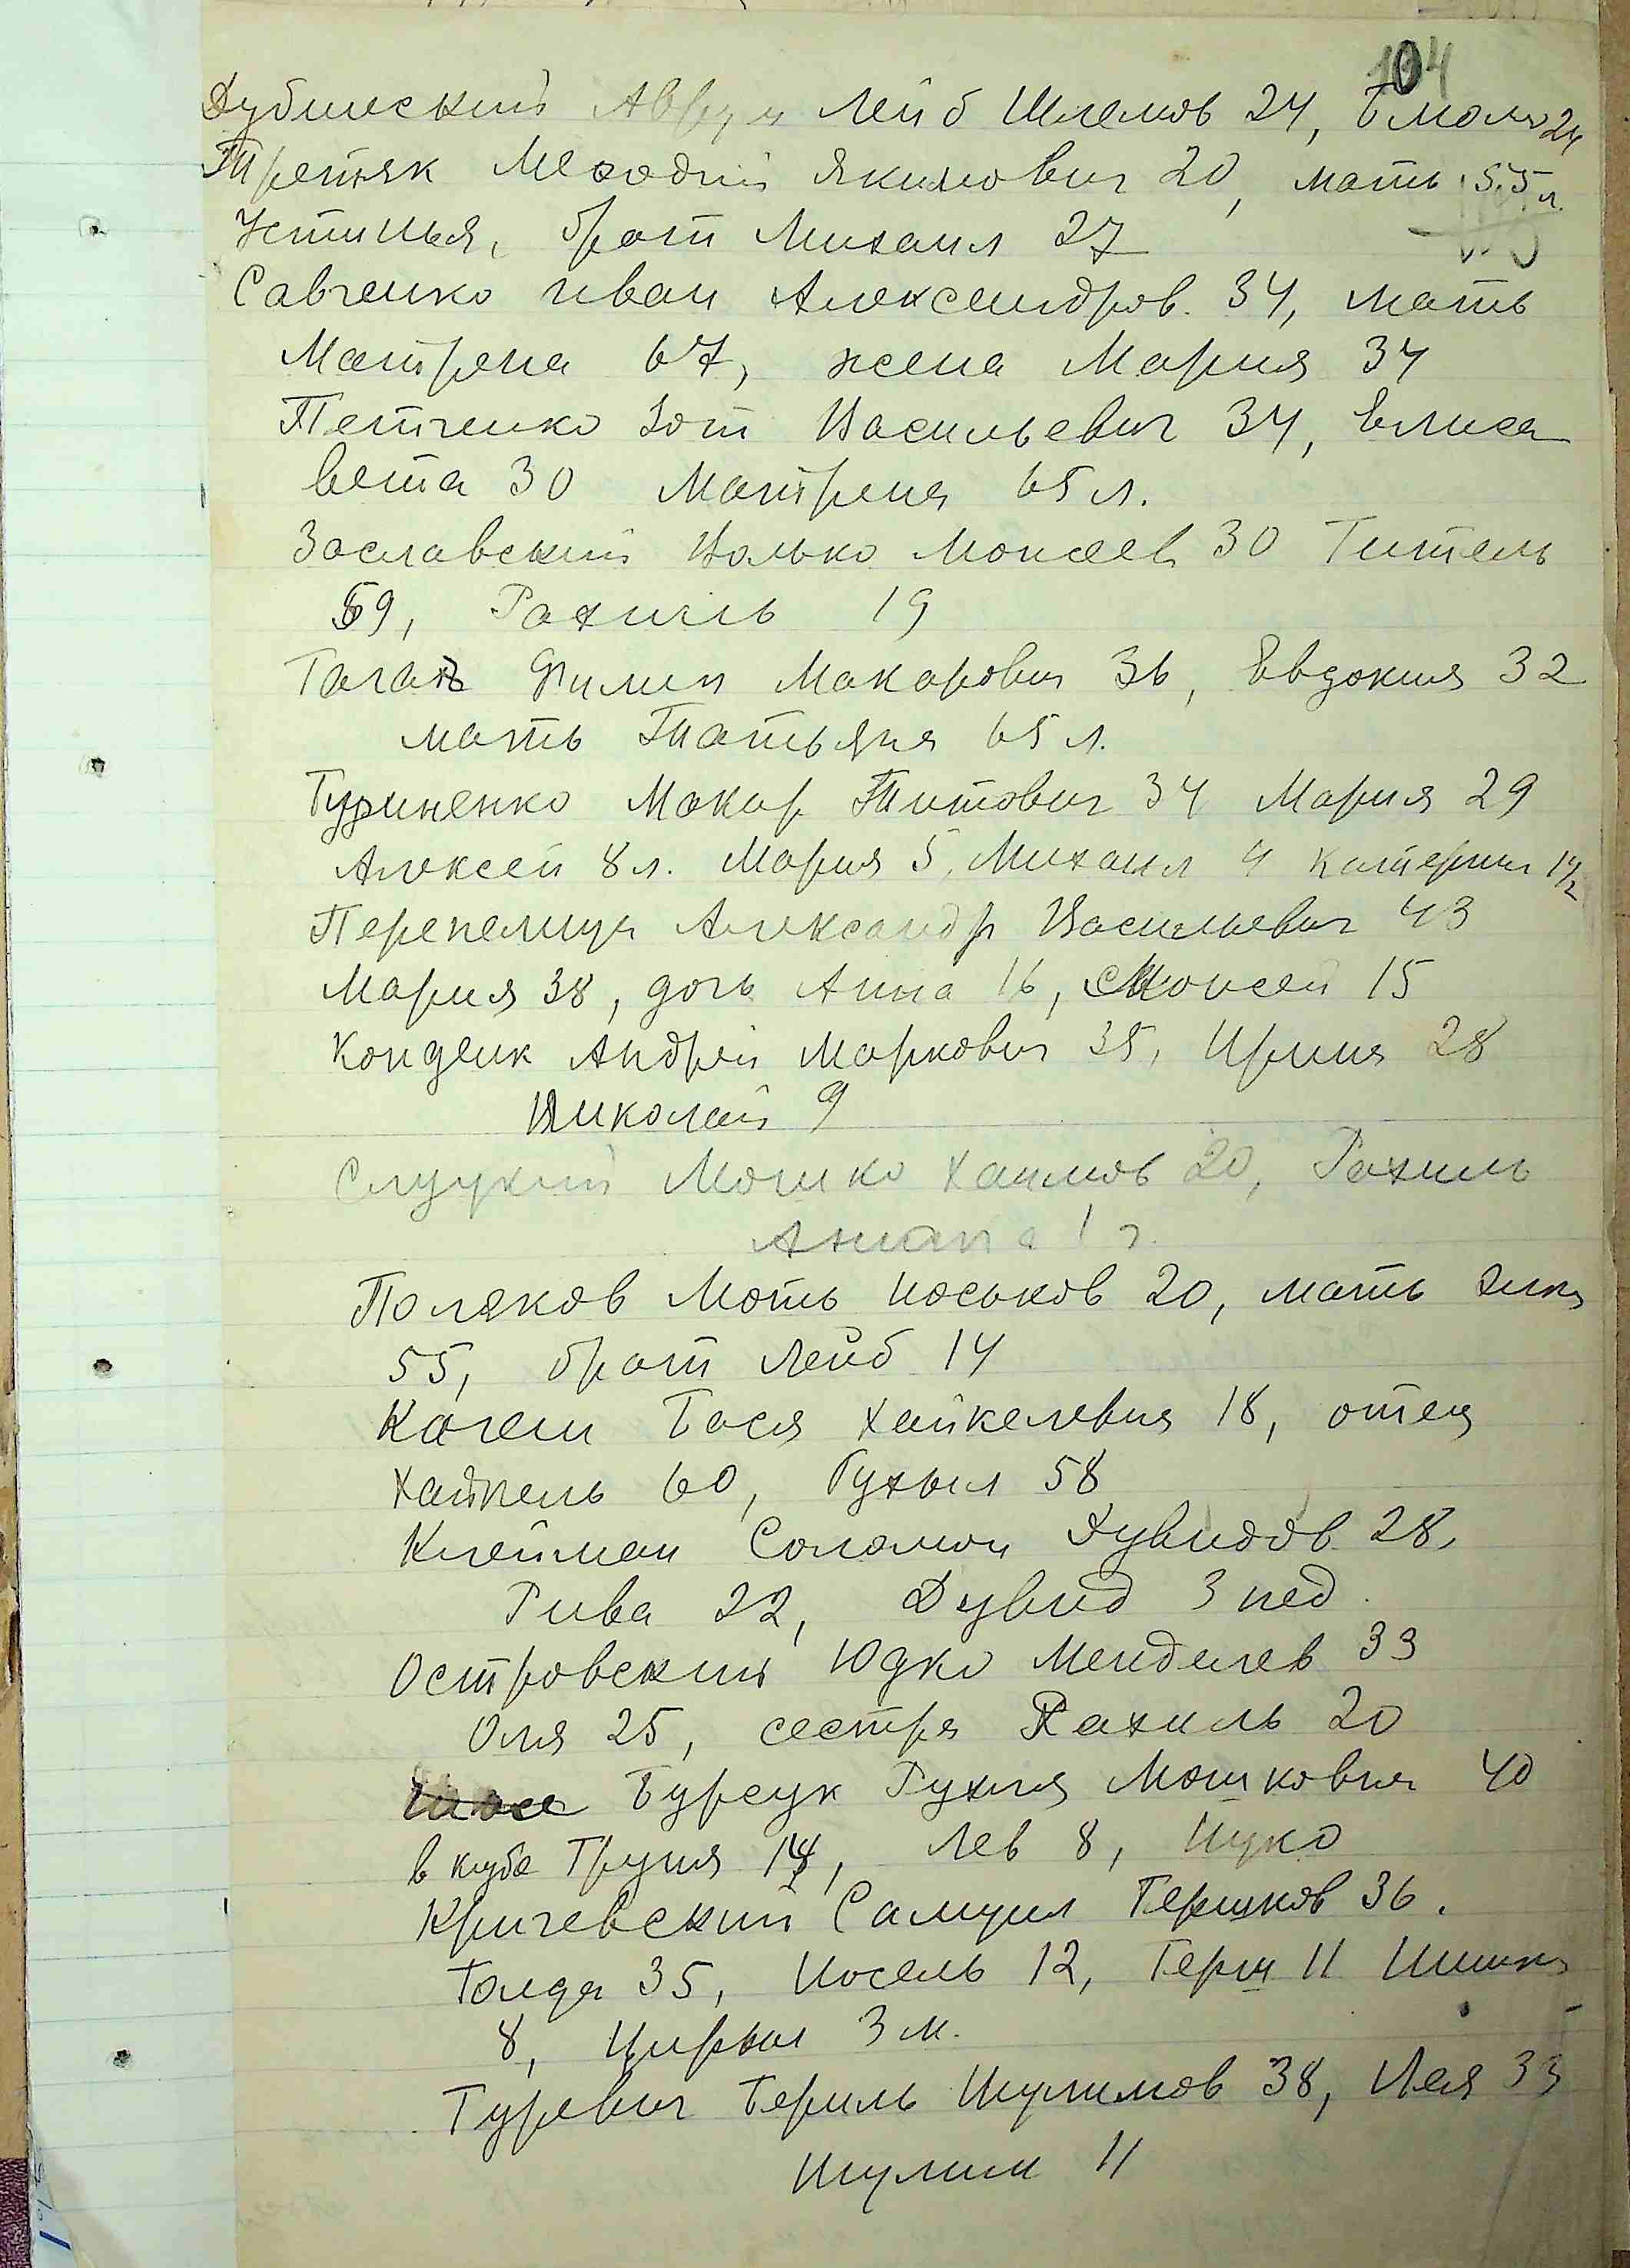 104
Дубинский Аврум Лейб Шлемов 24, 24
Третяк Мефодий Якимович 20, мать 55 л.
Устинья, брат Михаил 27
Савченко Иван Александров. 34, мать
Матрена 67, жена Мария 34
Петченко Зот Васильевич 34, Елиса
вета 30 Матрена 65 л.
Заславский Волько Моисеев 30 Гитель
59, Рахиль 19
Таган Филип Макарович 36, Евдокия 32
мать Татьяна 65 л.
Гуриненко Макар Титович 34 Мария 29
Алексей 8 л. Мария 5, Михаил 4 Катерина 1 1/2
Перепелица Александр Васильевич 43
Мария 38, дочь Анна 16, Моисей 15
Кондюк Андрей Маркович 35, Ирина 28
Николай 9
Слуцкий Мошко Хаимов 20, Рахиль
1 г.
Поляков Моть Иоськов 20, мать
55, брат Лейб 14
Каген Бася Хайкелевна 18, отец
Хайкель 60, Рухыл 58
Клейман Соломон Дувидов 28,
Рива 22, Дувид 3 нед.
Островский Юдко Менделев 33
Оля 25, сестра Рахиль 20
Бурсук Рухля Мошковна 40
Груня 14, Лев 8, Ицко
Кричевский Самуил Гершков 36.
Голда 35, Иосель 12, Герш 11
8, 3 м.
Гуревич Бериль Шулимов 38, Лея 33
Шулим 11